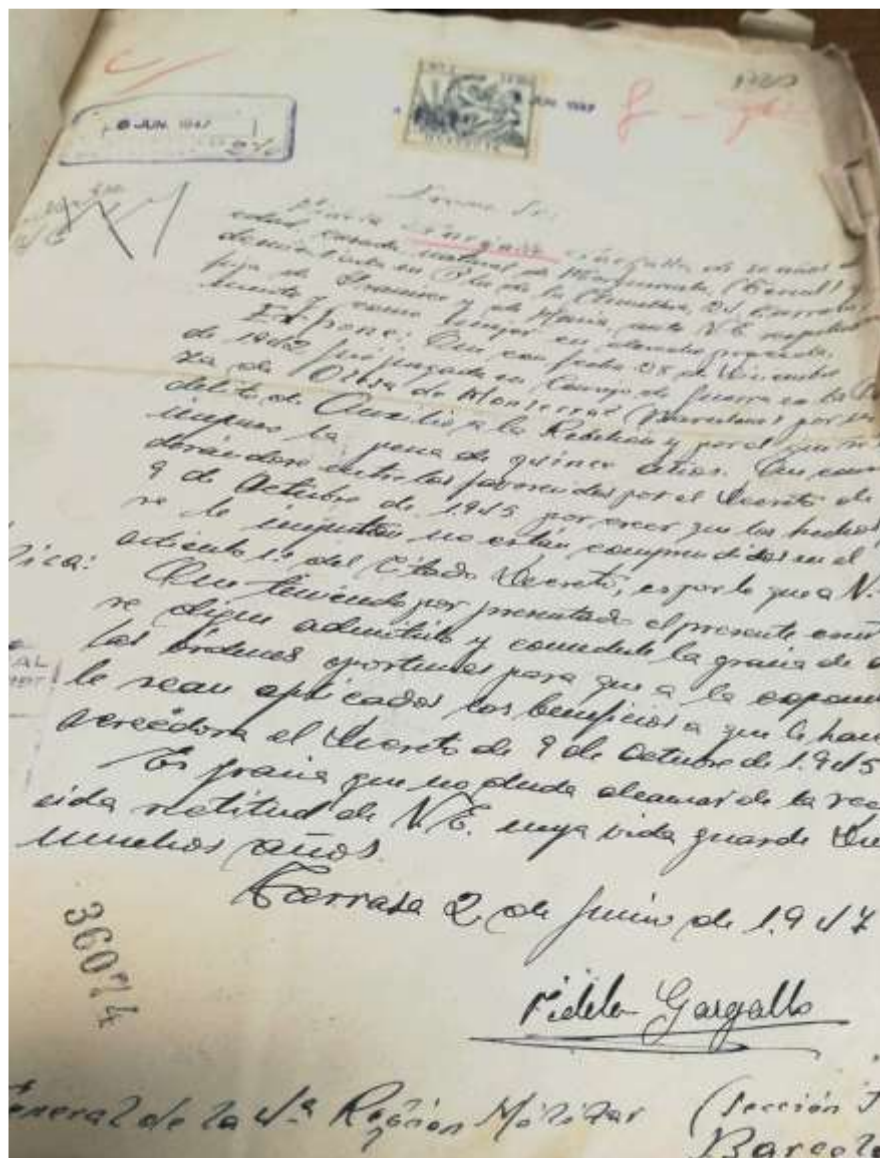 6 JUN. 1947
JUN. 1947
Excmo Sr:
Gargallo de 50 años de
edad, casada, natural de (Teruel) y
domiciliada en de la 25, Tarrasa,
hija de Francisco y de María, ante V.E. respetuosa
mente y como mejor en derecho proceda,
Expone: Que con fecha 25 de Diciembre
de 1942 fué juzgada en Consejo de Guerra en la
za de Olesa de Monserrat (Barcelona) por su
delito de Auxilio a la Rebelión y por el que se
impuso la pena de quince años. Que
dose entre los favorecidos por el Decreto de
9 de Octubre de 1945 por creer que los hechos
se le imputan no estan comprendidos en el
artículo 1º del Citado Decreto, es por lo que a V.
lica:
Que teniendo por presentado el presente
se digne admitirlo y concederle la gracia de
las órdenes oportunas para que a la
le sean aplicados los beneficios a que le
acreedora el Decreto de 9 de Octubre de 1.945
Es gracia que no duda alcanzar de la
cida rectitud de V.E. cuya vida guarde
muchos años.
Tarrasa 2 de Junio de 1.947
36074
Fidela Gargallo
General de la 4ª Región Militar (Sección
Barcel